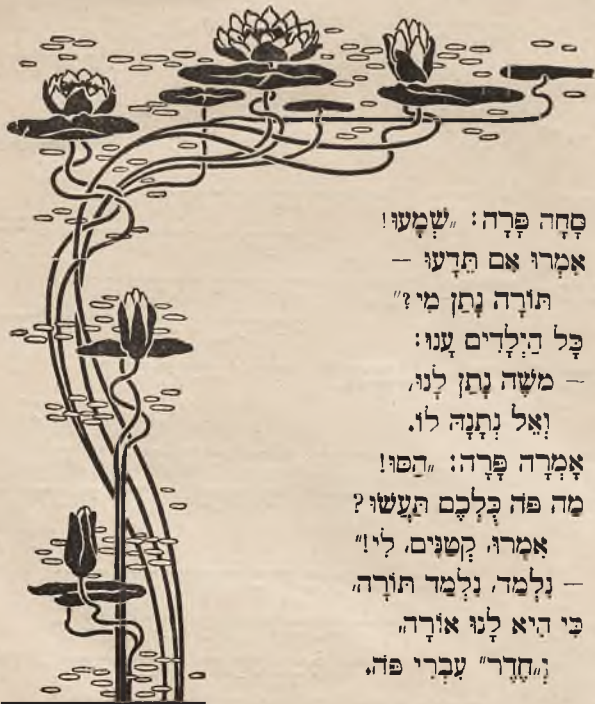 סָחָה פָּרָה: „שְׁמָעוּ!
אִמְרוּ אִם תֵּדָעוּ —
תּוֹרָה נָתַן מִי?“
כָּל הַיְלָדִים עָנוּ:
— משֶׁה נָתַן לָנוּ,
וְאֵל נְתָנָהּ לוֹ.
אָמְרָה פָּרָה: „הַסּוּ!
מַה פֹּה כֻּלְּכֶם תַּעֲשׂוּ?
אִמְרוּ, קְטַנִּים, לִי!“
— נִלְמַד, נִלְמַד תּוֹרָה,
כִּי הִיא לָנוּ אוֹרָה,
וְ„חֶדֶר“ עִבְרִי פֹּה.